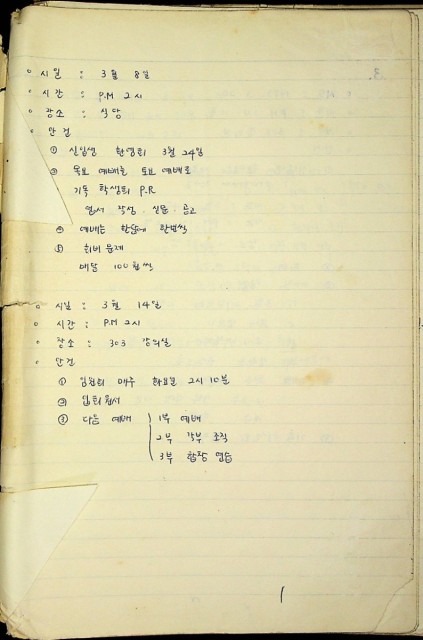 o 시일 : 3월 8일
o 시간 : P.M 2시
o 장소 : 식당
o 안건
① 신입생 환영회 3월 24일
② 목요 예배를 토요 예배로
기독 학생회 P.R
엽서 작성 신문 광고
④ 예배는 한달에 한번씩
⑤ 회비 문제
매달 100원씩
o 시일 : 3월 14일
o 시간 : P.M 2시
o 장소 : 303 강의실
o 안건
① 임원회 매주 화요일 2시 10분
② 입회원서
③ 다음 예배 1부 예배
2부 각부 조직
3부 합창 연습
1